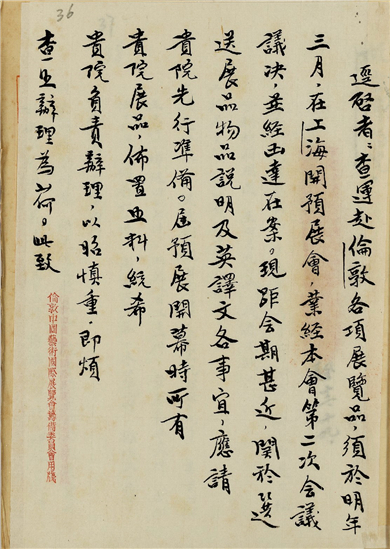 36
逕啓者:查運赴倫敦各項展覽品,須於明年
三月,在上海開預展會,業經本會第二次會議
議决,並經函達在案。現距會期甚近,關於選
送展品物品説明及英譯文各事宜,應請
貴院先行準備。屆預展開幕時所有
貴院展品,佈置
貴院負責辦理,以昭慎重。即煩
查
辦理為荷。此致
倫敦中國藝術國際展覽會籌備委員會用牋